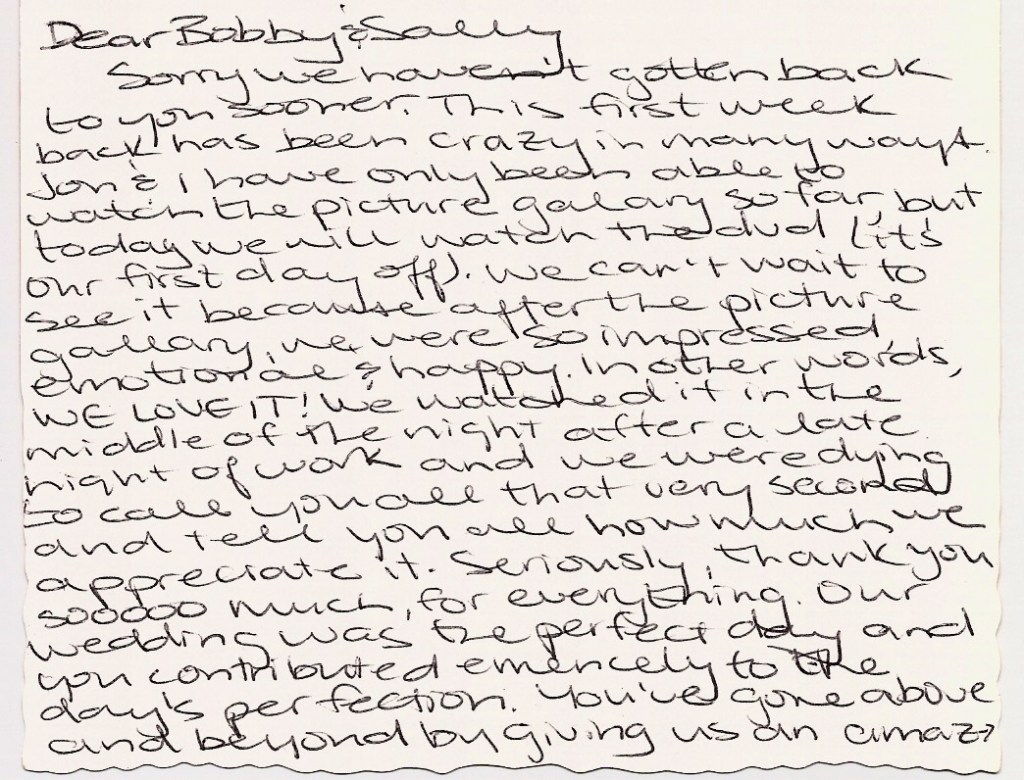 Dear Bobby & Sally
Sorry we haven't gotten back
to you sooner. This first week
back has been crazy in many ways.
Jon & I have only been able to
watch the picture galary so far, but
today we will watch the dvd (it's
our first day off). We can't wait to
see it because after the picture
gallary, we were so impressed,
emotional & happy. In other words,
WE LOVE IT! We watched it in the
middle of the night after a late
night of work and we were dying
to call you all that very second
and tell you all how much we
appreciate it. Seriously, thank you
sooooo much, for everything. Our
wedding was the perfect day and
you contributed emencely to the
day's perfection. You've gone above
and beyond by giving us an amaz→